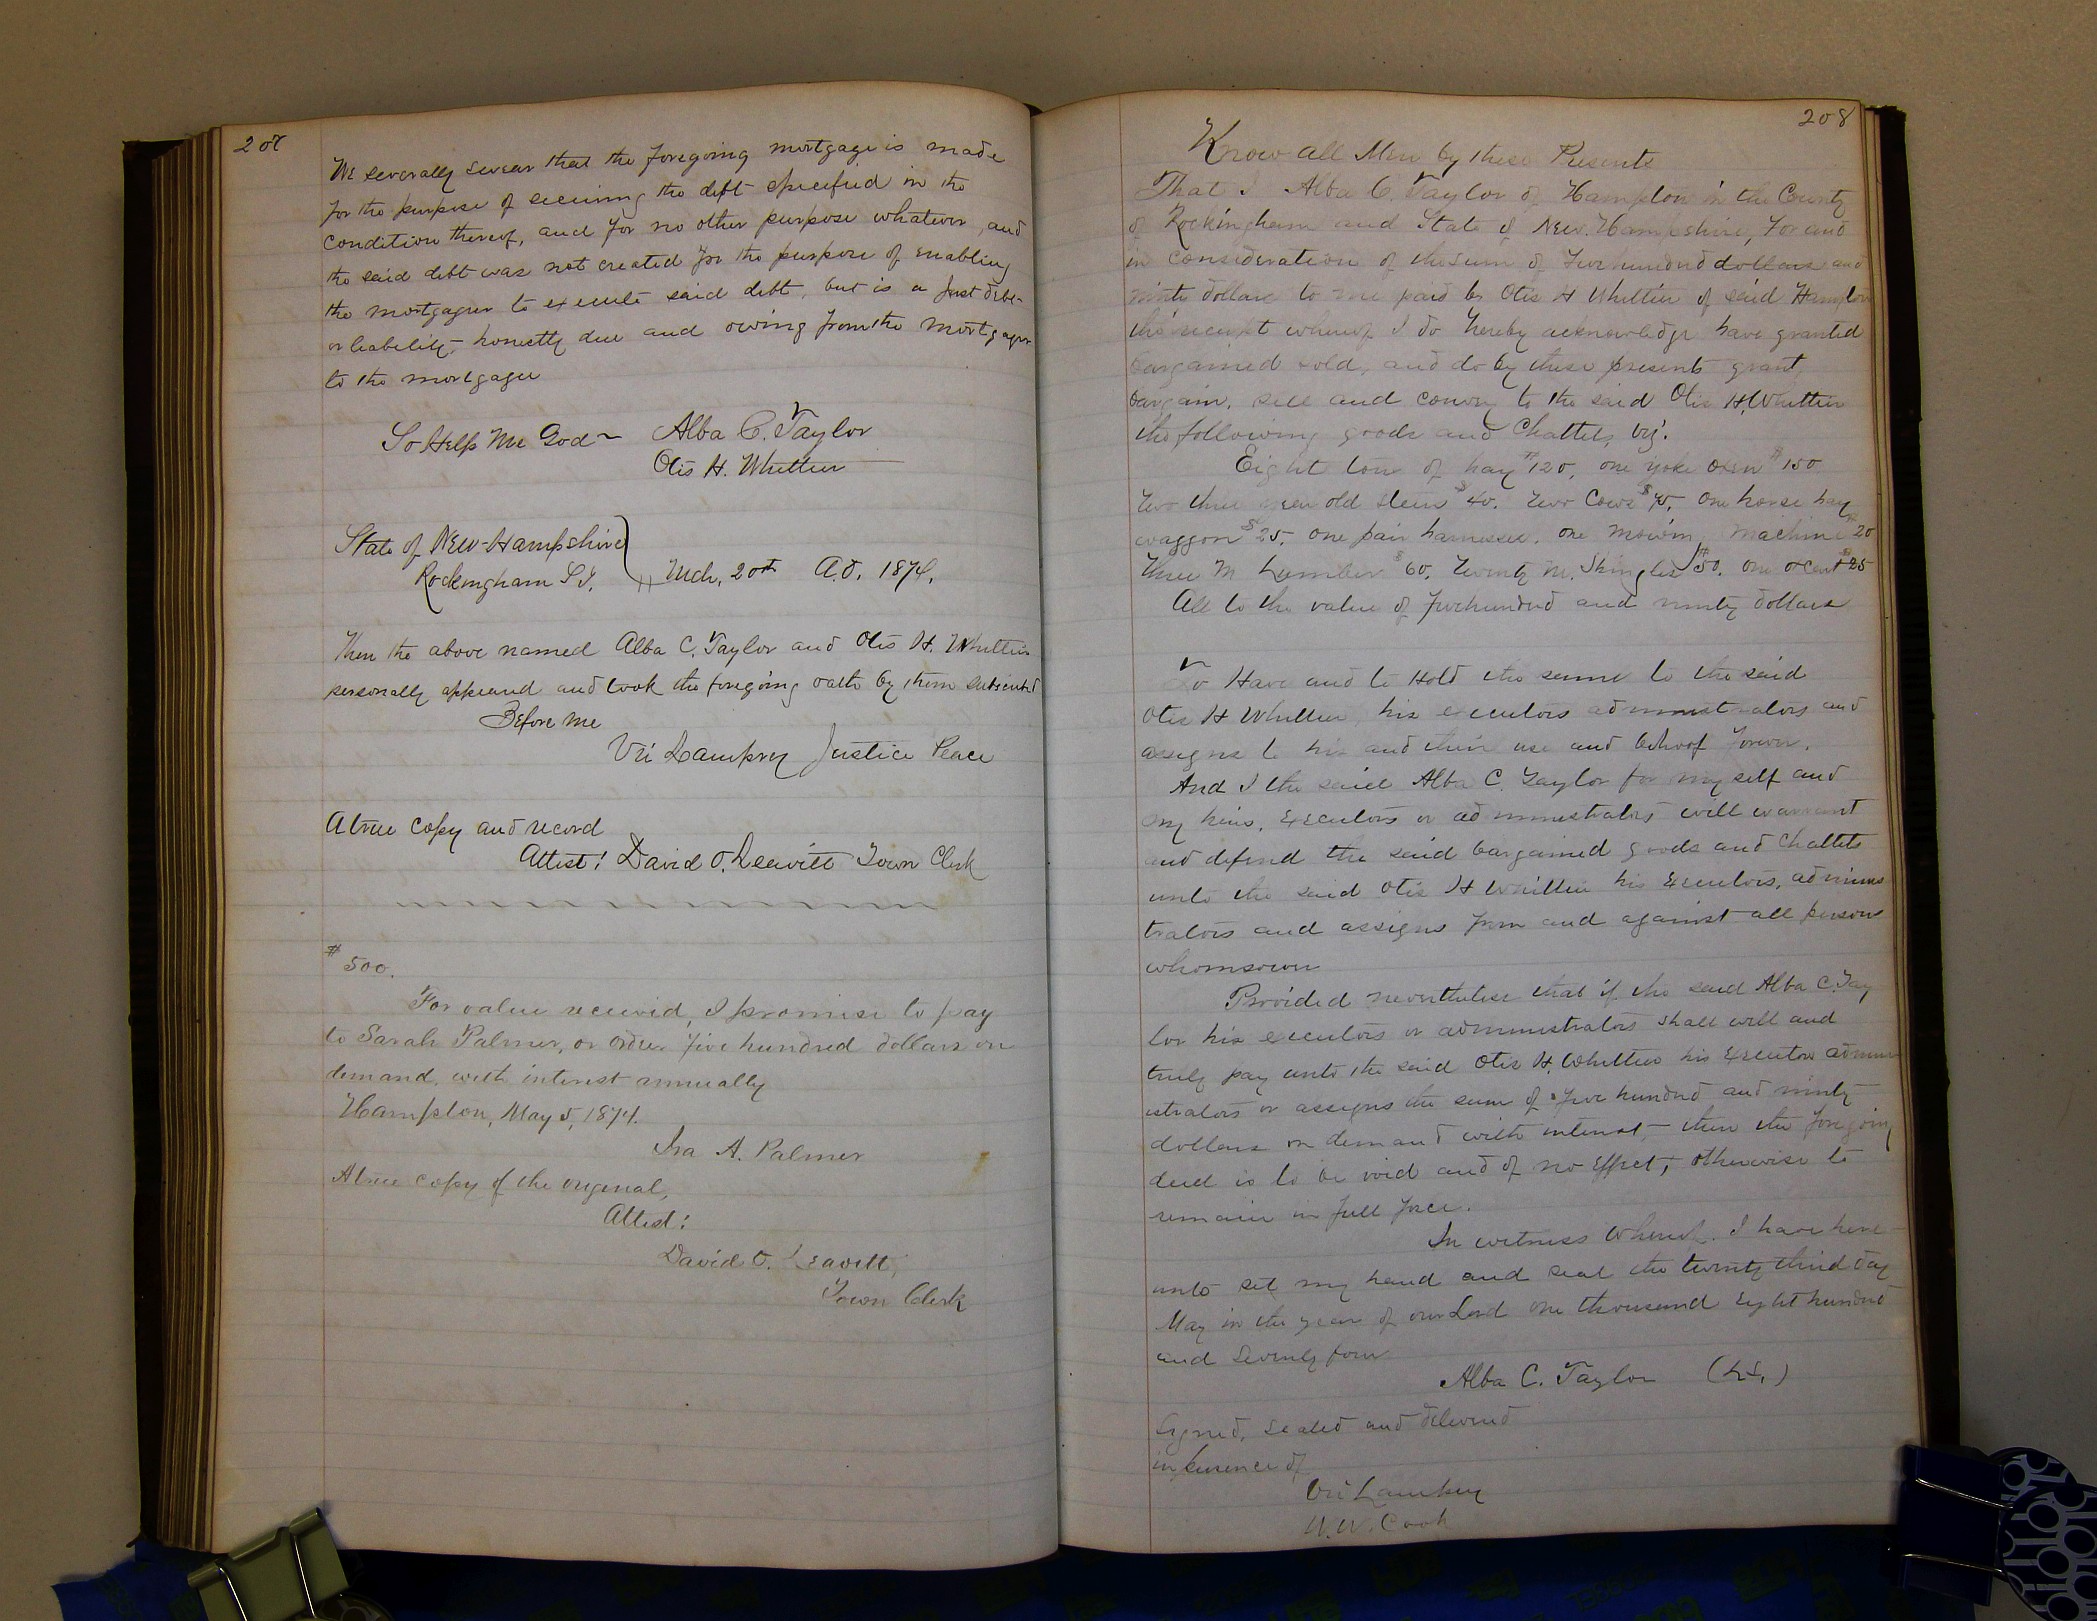 207
We severally swear that the foregoing mortgage is made
for the purpose of securing the debt specified in the
condition thereof, and for no other purpose whatever, and
the said debt was not created for the purpose of enabling
the mortgagor to execute said debt, but is a just debt
or liability honestly due and owing from the mortgagor
to the mortgagee
So Help Me God ~ Alba C. Taylor
Otis H. Whittier
State of New-Hampshire
Rockingham SS. Mch, 20th A.D. 1874.
Then the above named Alba C. Taylor and Otis H. Whittier
personally appeared and took the foregoing oath by them subscribed
Before me
Uri Lamprey Justice Peace
A true copy and record
Attest: David O. Leavitt Town Clerk
$500.
For value received, I promise to pay
to Sarah Palmer, or order five hundred dollars on
demand, with interest annually
Hampton, May 5, 1874.
Ira A. Palmer
A true copy of the original,
Attest:
David O. Leavitt,
Town Clerk
208
Know all Men by these Presents
That I Alba C. Taylor of Hampton in the County
of Rockingham and State of New Hampshire, For and
in consideration of the sum of five hundred dollars and
ninty dollars to me paid by Otis H Whittier of said Hampton
the receipt whereof I do hereby acknowledge have granted
bargained sold, and do by these presents grant,
bargain, sell and convey to the said Otis H. Whittier
the following goods and Chattels, viz.
Eight tons of hay $120, one yoke oxen $150
two three year old steers $40. two Cows $ one horse hay
waggon $25. one pair harnesses. one mowing machine $20
three M Lumber $60. Twenty M. Shingles $50. one $25
All to the value of five hundred and ninty dollars
To Have and to Hold the same to the said
Otis H Whittier, his executors administrators and
assigns to his and their use and behoof forever.
And I the said Alba C. Taylor for myself and
my heirs, executors or administrators will warrant
and defend the said bargained goods and Chattels
unto the said Otis H Whittier his Executors, adminis
trators and assigns from and against all persons
whomsoever
Provided nevertheless that if the said Alba C. Tay
lor his executors or administrators shall well and
truly pay unto the said Otis H. Whittier his Executors admin
istrators or assigns the sum of five hundred and ninty
dollars on demand with interest, then the foregoing
deed is to be void and of no effect, otherwise to
remain in full force.
In witness whereof, I have here
unto set my hand and seal the twenty third day
May in the year of our Lord one thousand Eight hundred
and Seventy four
Alba C. Taylor (L.S.)
Signed, sealed and delivered
in presence of
Uri Lamprey
W. Cook